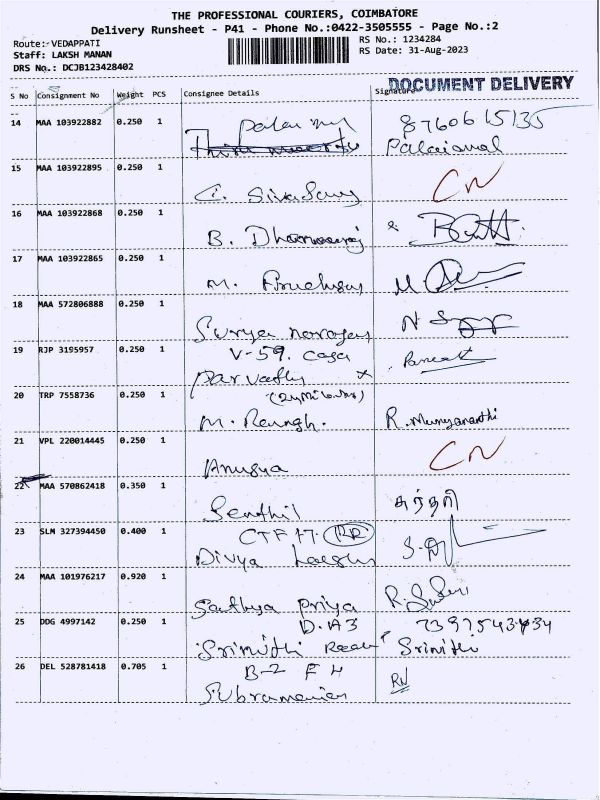 THE PROFESSIONAL COURIERS, COIMBATORE
Delivery Runsheet - P41 - Phone No.:0422-3505555 - Page No.:2
Route:-VEDAPPATI
Staff: LAKSH MANAN
DRS No.: DCJB123428402
RS No.: 1234284
RS Date: 31-Aug-2023
DOCUMENT DELIVERY
S No Consignment No Weight PCS Consignee Details Signature
14 MAA 103922882 0.250 1 8760615135
Palaiamal
15 MAA 103922895 0.250 1 CN
C.
16 MAA 103922868 0.250 1
B.
17 MAA 103922865 0.250 1
M.
18 MAA 572806888 0.250 1
Surya
19 RJP 3195957 0.250 1 V-59. Casa
Parvathy
20 TRP 7558736 0.250 1
M. R.
21 VPL 220014445 0.250 1 CN
Anusya
22 MAA 570862418 0.350 1
Senthil
23 SLM 327394450 0.400 1 CTF 17. RR
Divya
24 MAA 101976217 0.920 1
Sathya Priya
25 DDG 4997142 0.250 1 D.A3
Srinithi Srinithi
26 DEL 528781418 0.705 1 B-2 F4
Subramanian